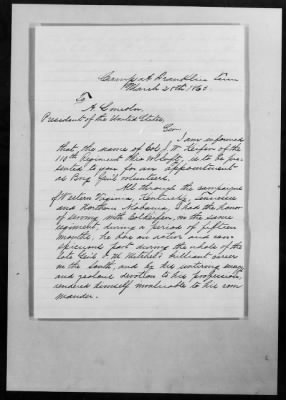 Camp at Franklin Tenn
March 25th 1863
To
A. Lincoln,
President of the United States,
Sir
I am informed
that, the name of Col J. W. Keifer of the
110th Regiment Ohio Vol Infty, is to be pre-
sented to you for an appointment
as Brig Genl Volunteers.
All through the campaigns
of Western Virginia, Kentucky, Tennessee
and Northern Alabama, I had the honor
of serving with Col Keifer, in the same
regiment, during a period of fifteen
months, he bore an active and con-
spicuous part during the whole of the
late Genl O. M. Mitchel's brilliant career
in the South, and by his untiring energy
and zealous devotion to his profession,
rendered himself invaluable to his com
mander.